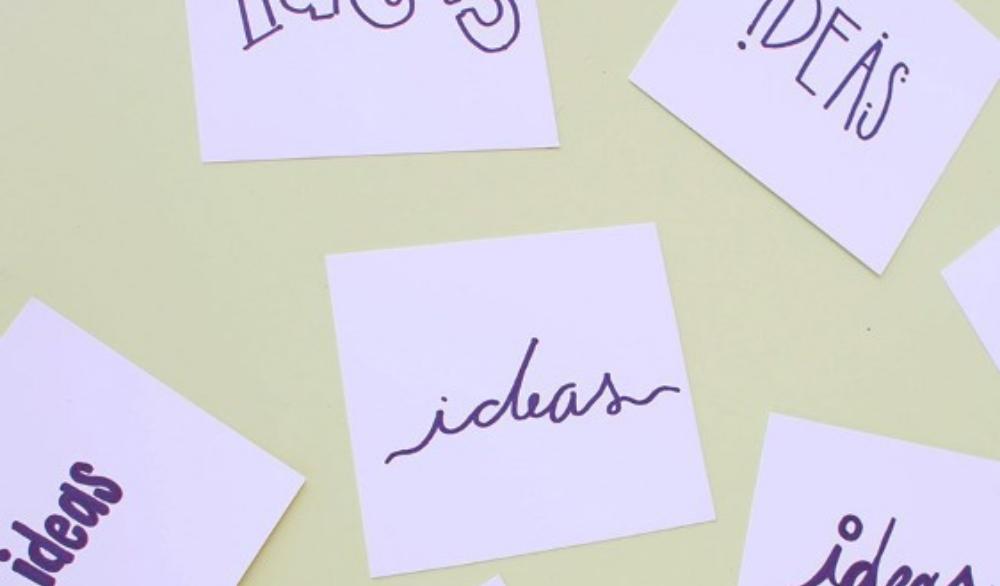 ideas
IDEAS
ideas
ideas
ideas